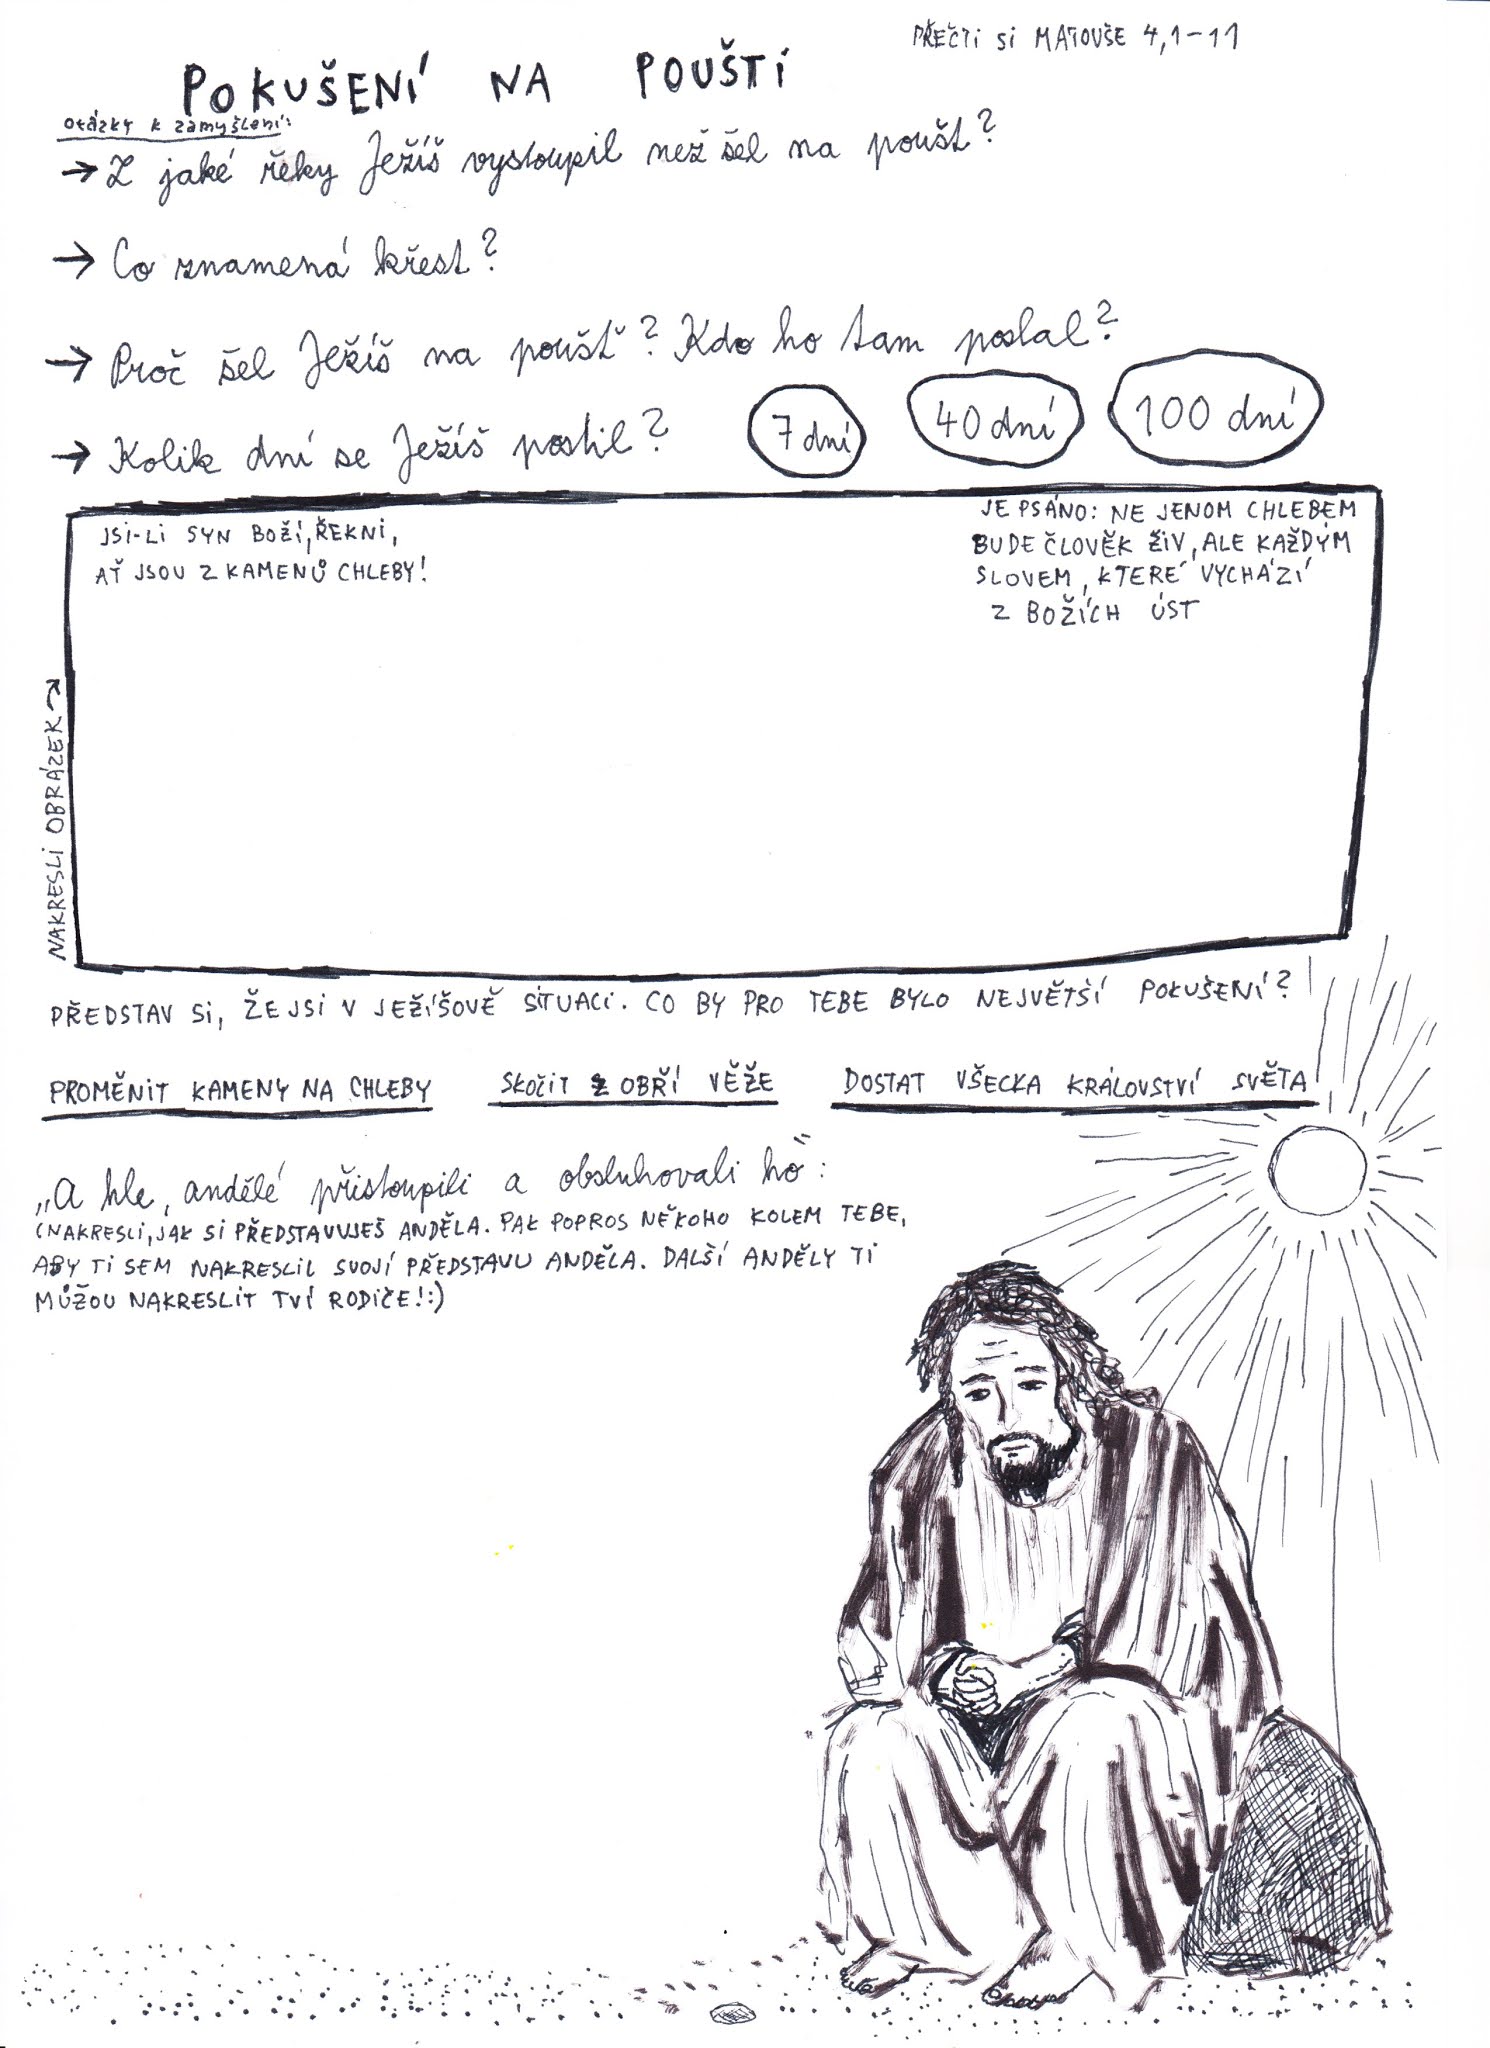 PŘEČTI SI MATOUŠE 4,1-11
POKUŠENÍ NA POUŠTI
Otázky k zamyšlení:
→ Z jaké řeky Ježíš vystoupil než šel na poušt?
→ Co znamená křest?
→ Proč šel Ježíš na poušť? Kdo ho tam poslal?
→ Kolik dní se Ježíš postil? 7 dní 40 dní 100 dní
JSI-LI SYN BOŽÍ, ŘEKNI,
AŤ JSOU Z KAMENŮ CHLEBY!
JE PSÁNO: NE JENOM CHLEBEM
BUDE ČLOVĚK ŽIV, ALE KAŽDÝM
SLOVEM, KTERÉ VYCHÁZÍ
Z BOŽÍCH ÚST
NAKRESLI OBRÁZEK →
PŘEDSTAV SI, ŽE JSI V JEŽÍŠOVĚ SITUACI. CO BY PRO TEBE BYLO NEJVĚTŠÍ POKUŠENÍ?
PROMĚNIT KAMENY NA CHLEBY SKOČIT Z OBŘÍ VĚŽE DOSTAT VŠECKA KRÁLOVSTVÍ SVĚTA
„A hle, andělé přistoupili a obsluhovali ho“:
(NAKRESLI, JAK SI PŘEDSTAVUJEŠ ANDĚLA. PAK POPROS NĚKOHO KOLEM TEBE,
ABY TI SEM NAKRESLIL SVOJÍ PŘEDSTAVU ANDĚLA. DALŠÍ ANDĚLY TI
MŮŽOU NAKRESLIT TVÍ RODIČE!:)